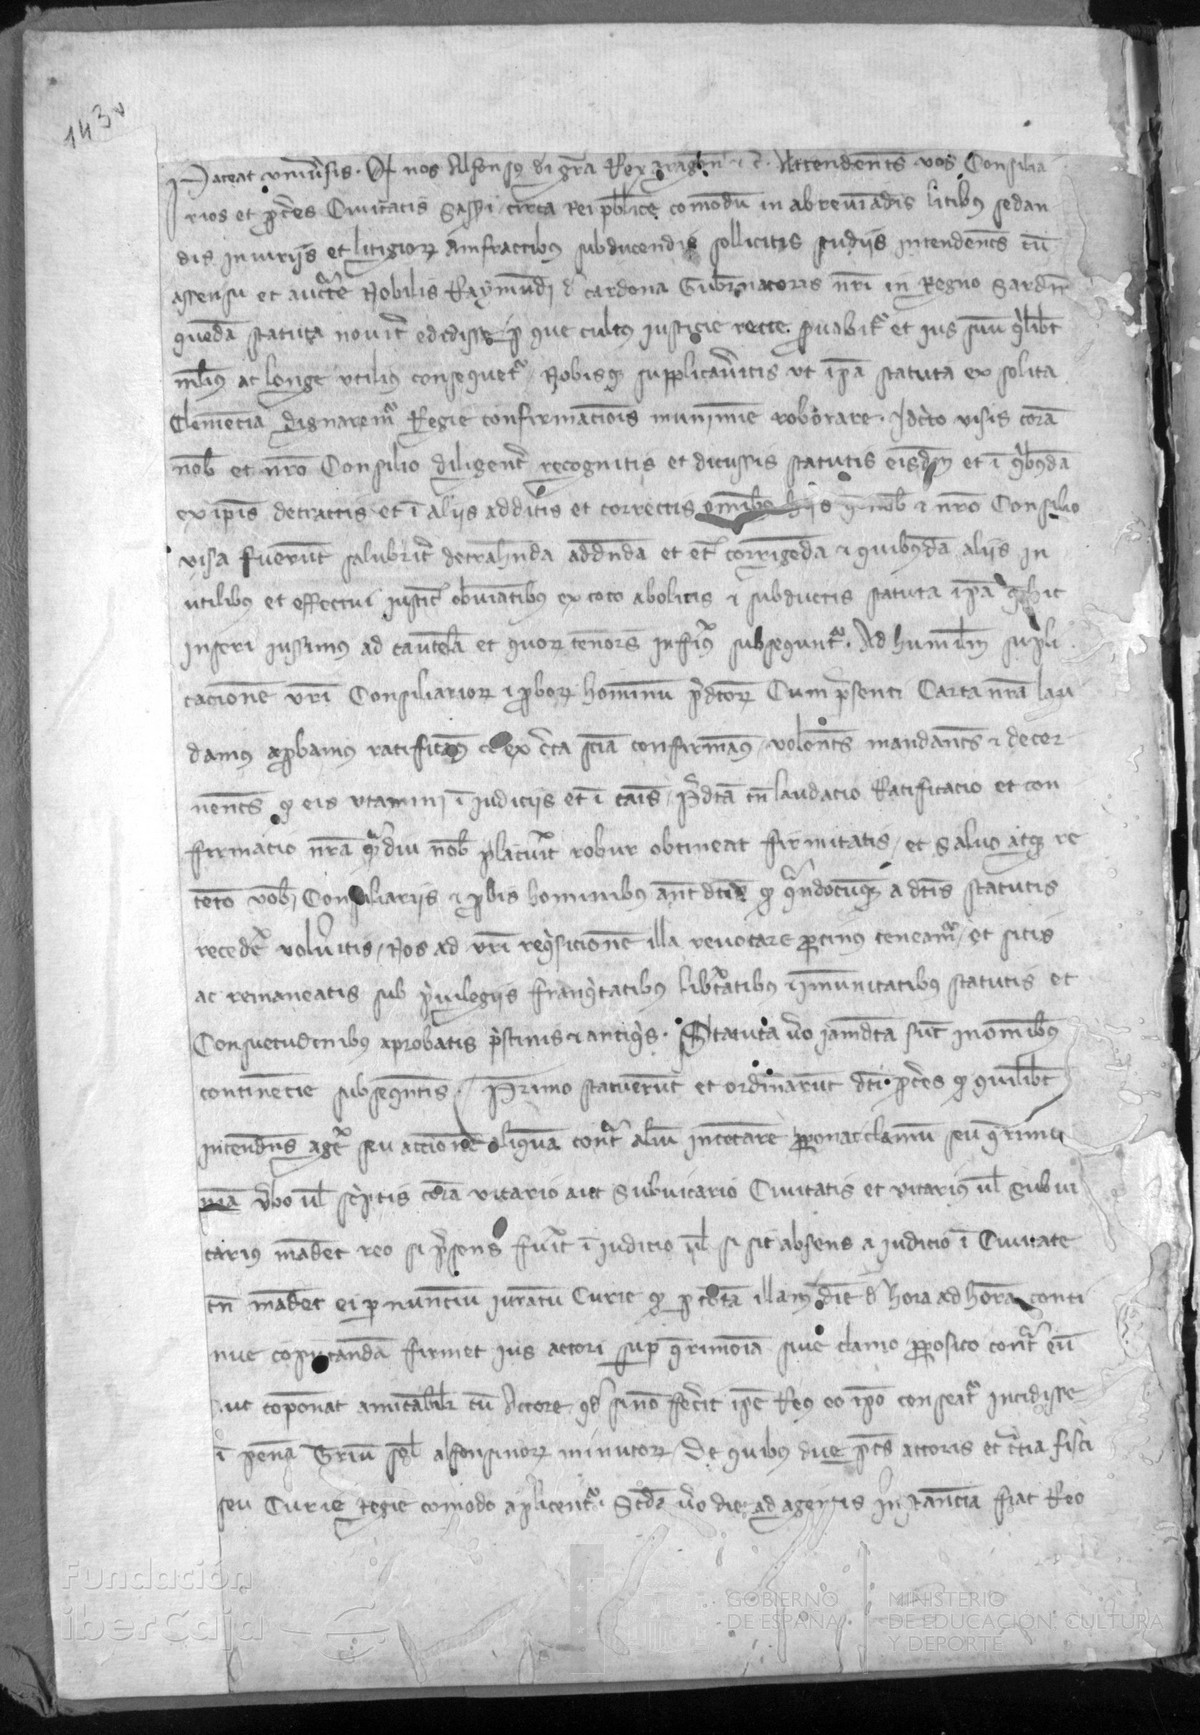 143v
Pateat universis. Qd nos Alfonsus dei gra Rex Aragon &c. Attendentes vos Consilia
rios et pceres Civitatis Sassi circa Rei publice comodum in abreviandis litibus sedan
dis iniuriis et litigiorum amfractibus subducendis sollicitis studiis intendentes cum
assensu et auctte Nobilis Raymundi de Cardona Gubernatoris nri in Regno Sardin
quedam statuta noviter edidisse per que cultus iusticie recte servabitur et ius suum quilibet
melius ac longe utilius consequetur Nobisque supplicaveritis ut ipa statuta ex solita
Clemencia dignaremur Regie confirmacionis munimine roborare. Idcirco visis coram
nob et nro Consilio diligenter recognitis et dicussis statutis eisdem et in quibusdam
ex ipis detractis et in aliis additis et correctis omnibus hiis que nob & nro Consilio
visa fuerunt salubriter detrahenda addenda et etiam corrigenda & quibusdam aliis in
utilibus et effectui iusticie obviantibus ex toto abolitis & subductis statuta ipa hic
inseri iussimus ad cautelam et quorum tenores inferius subsequntur. Ad humilem supli
cacionem vri Consiliariorum & proborum hominum predictorum Cum presenti Carta nra lau
damus aprobamus ratificamus et ex certa sciencia confirmamus volentes mandantes & decer
nentes qd eis utamini in iudiciis et in causis Predicta tamen laudacio Ratificacio et con
firmacio nra quamdiu nob placuerit robur obtineat firmitatis et Salvo atque re
tento vobis Consiliariis & probis hominibus ante dictis qd quandocumque a dictis statutis
recedere volueritis Nos ad vri requisicionem illa revocare protinus teneamur et sitis
ac remaneatis sub privilegiis franquitatibus libertatibus immunitatibus statutis et
Consuetudinibus aprobatis pristinis & antiquis. Statuta vero jamdicta sunt in omnibus
continencie subsequentis. Primo statuerunt et ordinarunt dicti proceres qd quilibet
intendens agere seu accionem aliquam contra alium intentare proponat clamum seu querimo
niam verbo vel scriptis coram vicario aut Subvicario Civitatis et vicarius vel Subvi
carius mandet reo si presens fuerit in iudicio vel si sit absens a iudicio in Civitate
tamen mandet ei per nuncium iuratum Curie qd per totam illam diem de hora ad horam conti
nue computandam firmet ius actori super querimoniam sive clamo proposito contra eum
aut componat amicabiliter cum Actore qd si non fecerit ipe Reus eo ipo censeatur incidisse
in penam Trium sol alfonsinorum minutorum De quibus due partes actoris et tercia fisci
seu Curie Regie comodo aplicentur. Secunda vero die ad agentis Instanciam fiat Reo
Fundación
iberCaja
GOBIERNO
DE ESPAÑA
MINISTERIO
DE EDUCACIÓN, CULTURA
Y DEPORTE